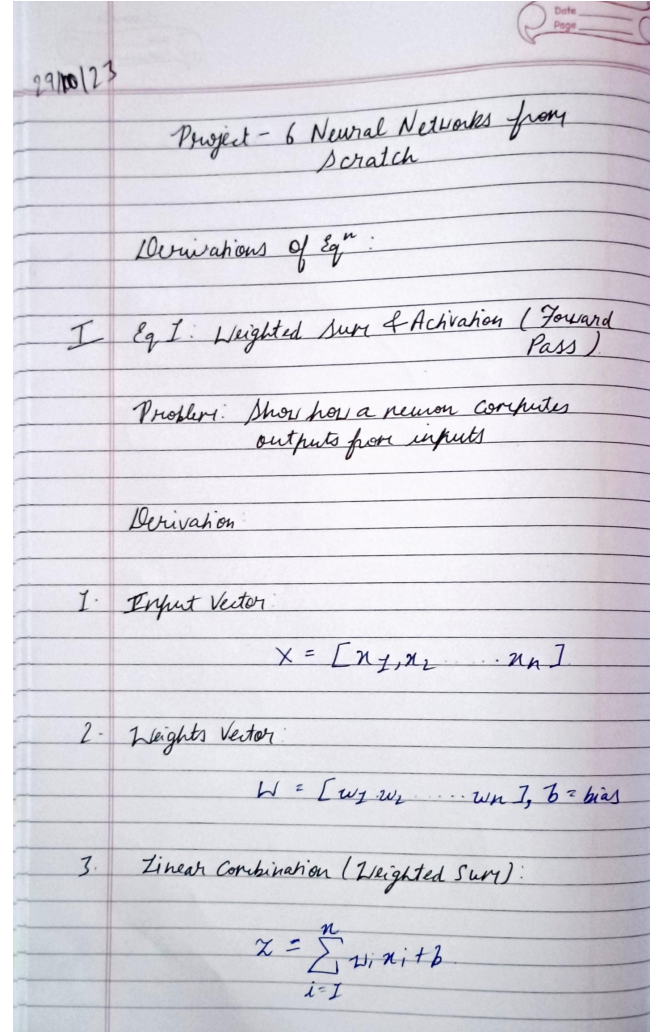 Date
Page
29/10/23
Project - 6 Neural Networks from
Scratch
Derivations of Eqⁿ :
I Eq 1: Weighted Sum & Activation (Forward
Pass)
Problem: Show how a neuron computes
outputs from inputs
Derivation
1. Input Vector:
X = [x1, x2 ..... xn]
2. Weights Vector:
W = [w1 w2 ..... wn], b = bias
3. Linear Combination (Weighted Sum):
n
z = ∑ wi xi + b
i=1